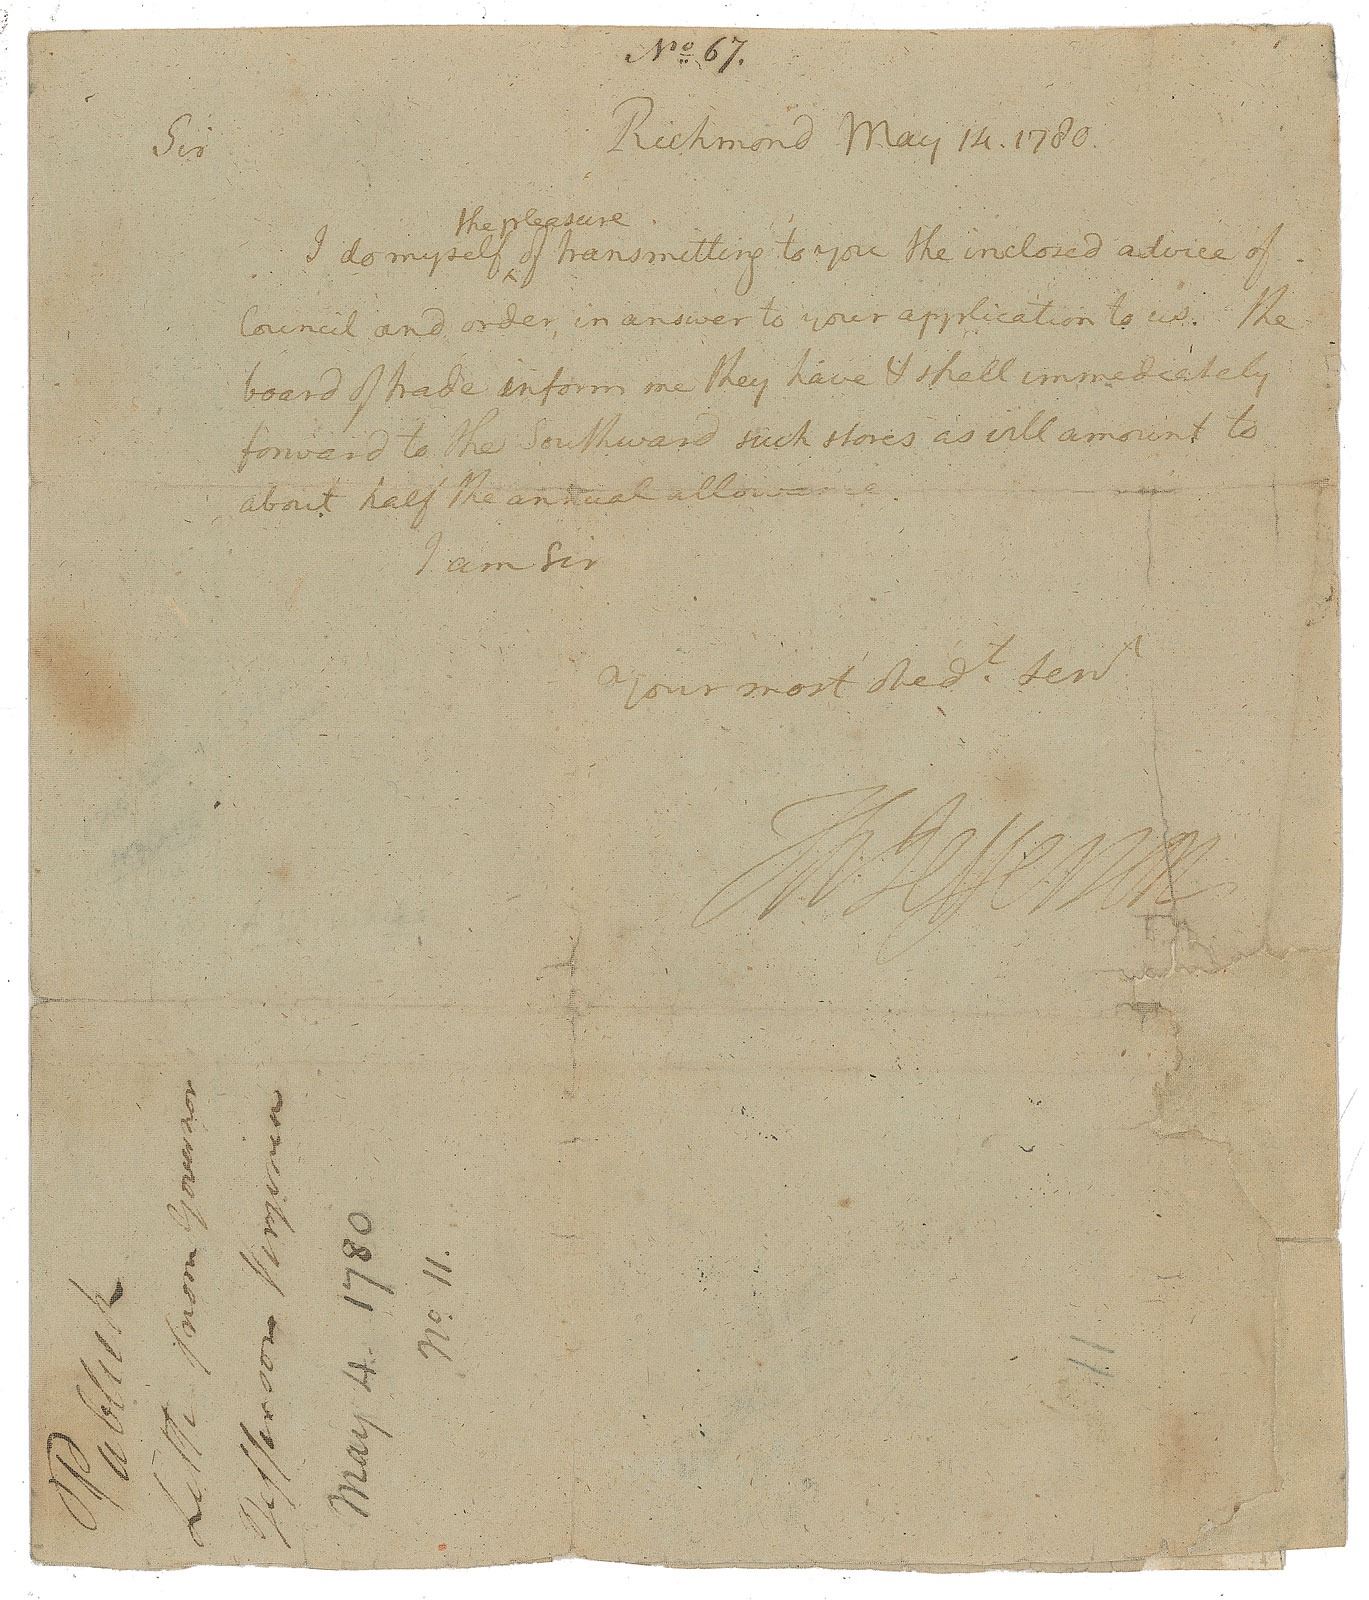 No 67.
Sir
Richmond May 14. 1780.
the pleasure
I do myself ^ of transmitting to you the inclosed advice of
Council and order, in answer to your application to us. the
board of trade inform me they have & shall immediately
forward to the Southward such stores as will amount to
about half the annual allowance.
I am Sir
Your most obedt. servt
Th Jefferson
Publick
Lettr from Governor
Jefferson Virginia
May 4. 1780
No. 11.
11